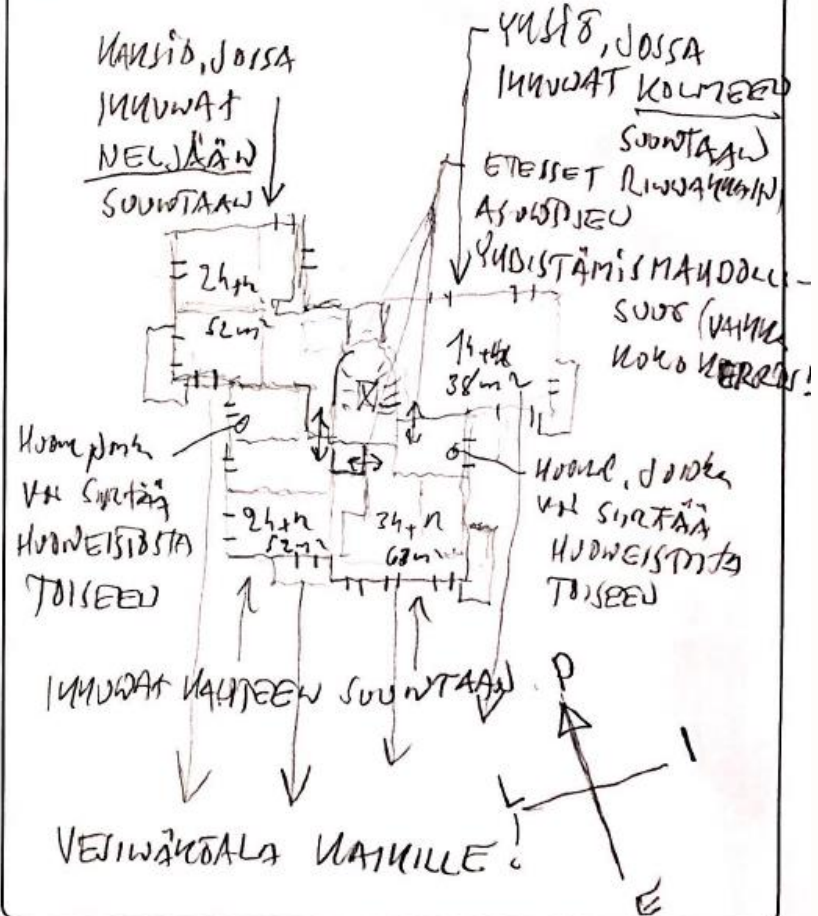 KAKSIO, JOSSA
IKKUNAT
NELJÄÄN
SUUNTAAN
YKSIÖ, JOSSA
IKKUNAT KOLMEEN
SUUNTAAN
ETEISET RINNAKKAIN,
ASUNTOJEN
YHDISTÄMISMAHDOLLI-
SUUS (VAIKKA
KOKO KERROS!
2h+k
52m²
38m²
2h+k
52m²
3h+k
68m²
Huone jonka
VOI SIIRTÄÄ
HUONEISTOSTA
TOISEEN
HUONE, JONKA
VOI SIIRTÄÄ
HUONEISTOSTA
TOISEEN
IKKUNAT KAHTEEN SUUNTAAN
VESINÄKÖALA KAIKILLE!
P
L
I
E